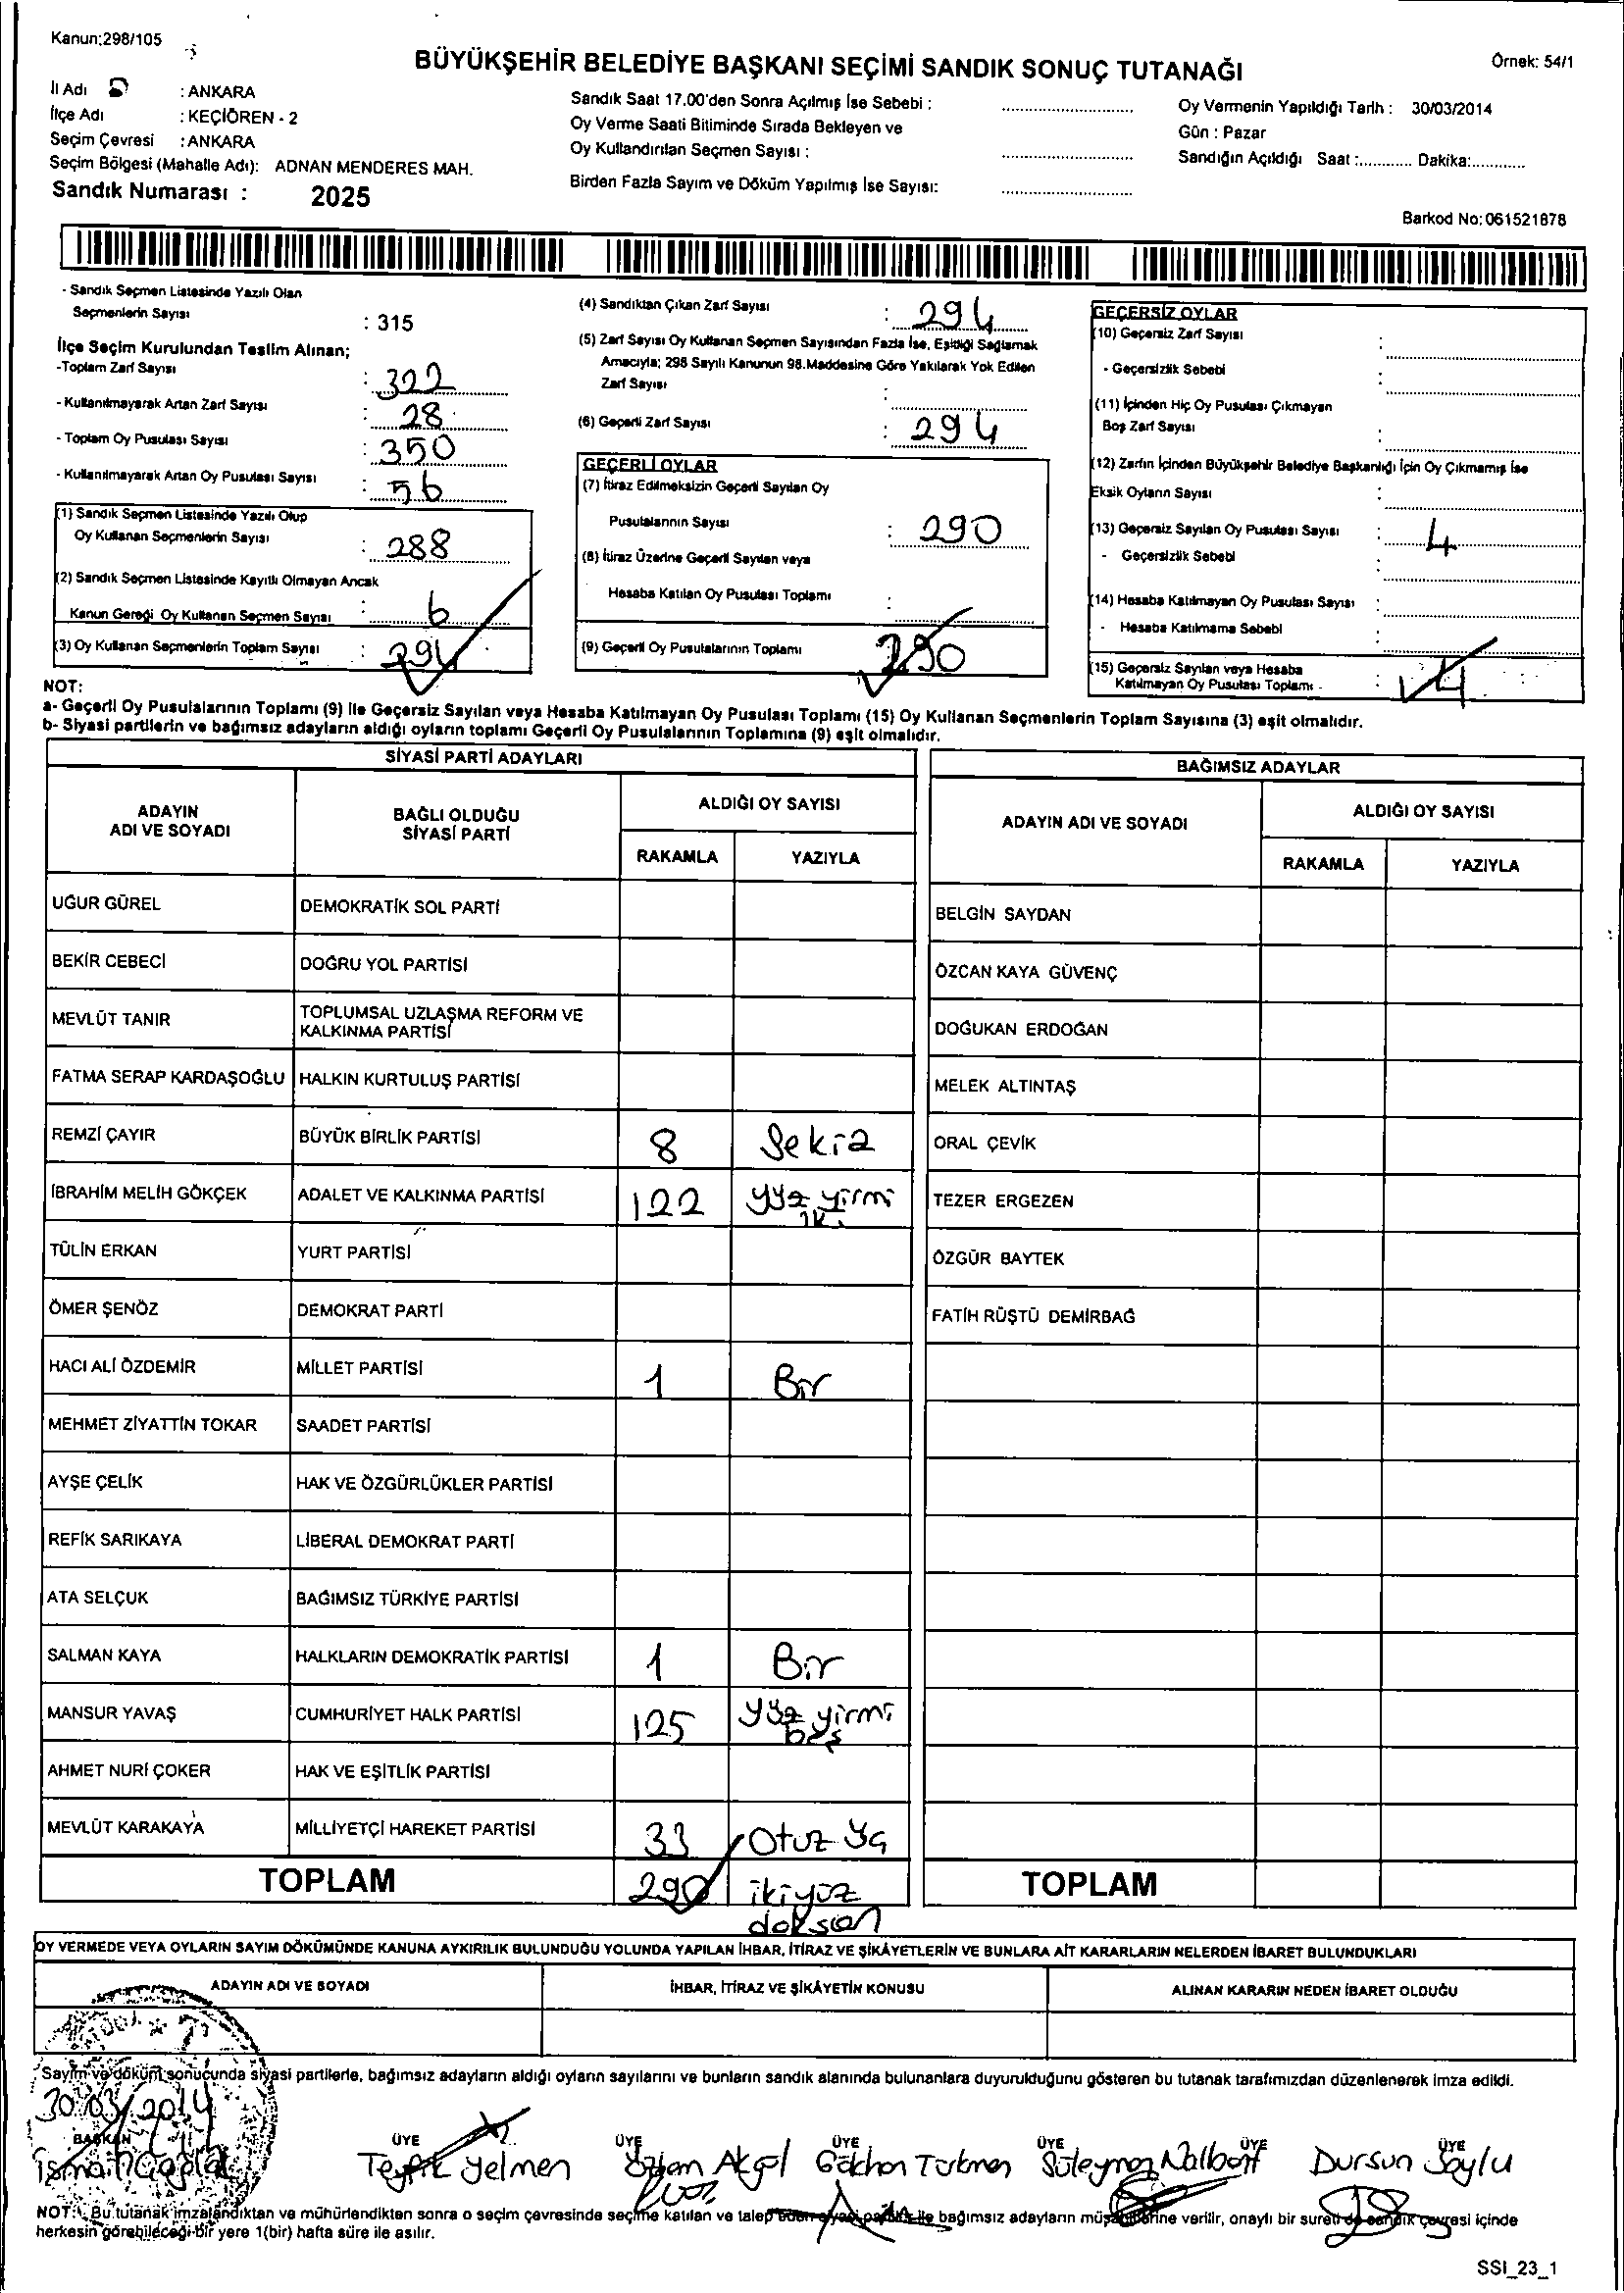 Kanun;298/105
BÜYÜKŞEHİR BELEDİYE BAŞKANI SEÇİMİ SANDIK SONUÇ TUTANAĞI
Örnek: 54/1
İl Adı : ANKARA
İlçe Adı : KEÇİÖREN - 2
Seçim Çevresi : ANKARA
Seçim Bölgesi (Mahalle Adı): ADNAN MENDERES MAH.
Sandık Numarası : 2025
Sandık Saat 17.00'den Sonra Açılmış İse Sebebi :
Oy Verme Saati Bitiminde Sırada Bekleyen ve
Oy Kullandırılan Seçmen Sayısı :
Birden Fazla Sayım ve Döküm Yapılmış İse Sayısı:
Oy Vermenin Yapıldığı Tarih : 30/03/2014
Gün : Pazar
Sandığın Açıldığı Saat :............ Dakika:............
Barkod No: 061521878
- Sandık Seçmen Listesinde Yazılı Olan
Seçmenlerin Sayısı : 315
İlçe Seçim Kurulundan Teslim Alınan;
-Toplam Zarf Sayısı : 322
- Kullanılmayarak Artan Zarf Sayısı : 28
- Toplam Oy Pusulası Sayısı : 350
- Kullanılmayarak Artan Oy Pusulası Sayısı : 56
(1) Sandık Seçmen Listesinde Yazılı Olup
Oy Kullanan Seçmenlerin Sayısı : 288
(2) Sandık Seçmen Listesinde Kayıtlı Olmayan Ancak
Kanun Gereği Oy Kullanan Seçmen Sayısı : 6
(3) Oy Kullanan Seçmenlerin Toplam Sayısı : 294
(4) Sandıktan Çıkan Zarf Sayısı : 294
(5) Zarf Sayısı Oy Kullanan Seçmen Sayısından Fazla İse, Eşitliği Sağlamak
Amacıyla; 298 Sayılı Kanunun 98.Maddesine Göre Yakılarak Yok Edilen
Zarf Sayısı :
(6) Geçerli Zarf Sayısı : 294
GEÇERLİ OYLAR
(7) İtiraz Edilmeksizin Geçerli Sayılan Oy
Pusulalarının Sayısı : 290
(8) İtiraz Üzerine Geçerli Sayılan veya
Hesaba Katılan Oy Pusulası Toplamı :
(9) Geçerli Oy Pusulalarının Toplamı 290
GEÇERSİZ OYLAR
(10) Geçersiz Zarf Sayısı :
- Geçersizlik Sebebi :
(11) İçinden Hiç Oy Pusulası Çıkmayan
Boş Zarf Sayısı :
(12) Zarfın İçinden Büyükşehir Belediye Başkanlığı İçin Oy Çıkmamış İse
Eksik Oyların Sayısı :
(13) Geçersiz Sayılan Oy Pusulası Sayısı : 4
- Geçersizlik Sebebi :
(14) Hesaba Katılmayan Oy Pusulası Sayısı :
- Hesaba Katılmama Sebebi :
(15) Geçersiz Sayılan veya Hesaba
Katılmayan Oy Pusulası Toplamı : 4
NOT:
a- Geçerli Oy Pusulalarının Toplamı (9) ile Geçersiz Sayılan veya Hesaba Katılmayan Oy Pusulası Toplamı (15) Oy Kullanan Seçmenlerin Toplam Sayısına (3) eşit olmalıdır.
b- Siyasi partilerin ve bağımsız adayların aldığı oyların toplamı Geçerli Oy Pusulalarının Toplamına (9) eşit olmalıdır.
SİYASİ PARTİ ADAYLARI
ADAYIN ADI VE SOYADI BAĞLI OLDUĞU SİYASİ PARTİ ALDIĞI OY SAYISI
RAKAMLA YAZIYLA
UĞUR GÜREL DEMOKRATİK SOL PARTİ
BEKİR CEBECİ DOĞRU YOL PARTİSİ
MEVLÜT TANIR TOPLUMSAL UZLAŞMA REFORM VE KALKINMA PARTİSİ
FATMA SERAP KARDAŞOĞLU HALKIN KURTULUŞ PARTİSİ
REMZİ ÇAYIR BÜYÜK BİRLİK PARTİSİ 8 Sekiz
İBRAHİM MELİH GÖKÇEK ADALET VE KALKINMA PARTİSİ 122 yüz yirmi iki
TÜLİN ERKAN YURT PARTİSİ
ÖMER ŞENÖZ DEMOKRAT PARTİ
HACI ALİ ÖZDEMİR MİLLET PARTİSİ 1 Bir
MEHMET ZİYATTİN TOKAR SAADET PARTİSİ
AYŞE ÇELİK HAK VE ÖZGÜRLÜKLER PARTİSİ
REFİK SARIKAYA LİBERAL DEMOKRAT PARTİ
ATA SELÇUK BAĞIMSIZ TÜRKİYE PARTİSİ
SALMAN KAYA HALKLARIN DEMOKRATİK PARTİSİ 1 Bir
MANSUR YAVAŞ CUMHURİYET HALK PARTİSİ 125 yüz yirmi beş
AHMET NURİ ÇOKER HAK VE EŞİTLİK PARTİSİ
MEVLÜT KARAKAYA MİLLİYETÇİ HAREKET PARTİSİ 33 Otuz üç
TOPLAM 290 ikiyüz doksan
BAĞIMSIZ ADAYLAR
ADAYIN ADI VE SOYADI ALDIĞI OY SAYISI
RAKAMLA YAZIYLA
BELGİN SAYDAN
ÖZCAN KAYA GÜVENÇ
DOĞUKAN ERDOĞAN
MELEK ALTINTAŞ
ORAL ÇEVİK
TEZER ERGEZEN
ÖZGÜR BAYTEK
FATİH RÜŞTÜ DEMİRBAĞ
TOPLAM
OY VERMEDE VEYA OYLARIN SAYIM DÖKÜMÜNDE KANUNA AYKIRILIK BULUNDUĞU YOLUNDA YAPILAN İHBAR, İTİRAZ VE ŞİKÂYETLERİN VE BUNLARA AİT KARARLARIN NELERDEN İBARET BULUNDUKLARI
ADAYIN ADI VE SOYADI İHBAR, İTİRAZ VE ŞİKÂYETİN KONUSU ALINAN KARARIN NEDEN İBARET OLDUĞU
Sayım ve döküm sonucunda siyasi partilerle, bağımsız adayların aldığı oyların sayılarını ve bunların sandık alanında bulunanlara duyurulduğunu gösteren bu tutanak tarafımızdan düzenlenerek imza edildi.
30/03/2014
BAŞKAN ÜYE ÜYE ÜYE ÜYE ÜYE ÜYE
İsmail Tevfik Yelmen Özlem Akgöl Gökhan Türkmen Süleyman Nalbant Dursun Soylu
NOT: Bu tutanak imzalandıktan ve mühürlendikten sonra o seçim çevresinde seçime katılan ve talep eden siyasi partiler ile bağımsız adayların müşahitlerine verilir, onaylı bir sureti de sandık çevresi içinde
herkesin görebileceği bir yere 1(bir) hafta süre ile asılır.
SSI_23_1